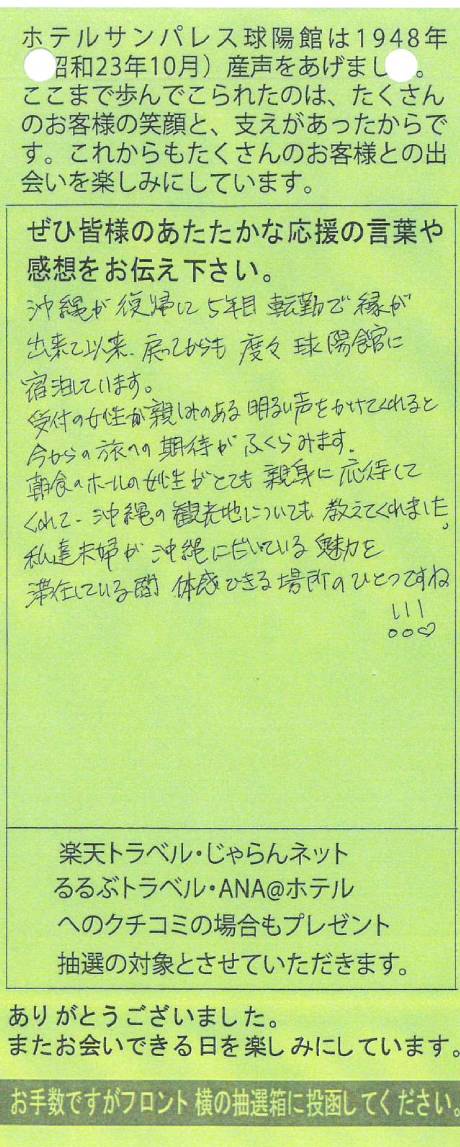 ホテルサンパレス球陽館は1948年
昭和23年10月）産声をあげまし。
ここまで歩んでこられたのは、たくさん
のお客様の笑顔と、支えがあったからで
す。これからもたくさんのお客様との出
会いを楽しみにしています。
ぜひ皆様のあたたかな応援の言葉や
感想をお伝え下さい。
沖縄が復帰して5年目 転勤で縁が
出来て以来、戻ってからも 度々 球陽館に
宿泊しています。
受付の女性が親しみのある 明るい声をかけてくれると
今からの旅への期待がふくらみます。
朝食のホールの女性がとても 親身に応待して
くれて、沖縄の観光地についても 教えてくれました。
私達夫婦が沖縄に抱いている魅力を
滞在している間 体感できる場所のひとつですね
!!!
楽天トラベル・じゃらんネット
るるぶトラベル・ANA@ホテル
へのクチコミの場合もプレゼント
抽選の対象とさせていただきます。
ありがとうございました。
またお会いできる日を楽しみにしています。
お手数ですがフロント横の抽選箱に投函してください。